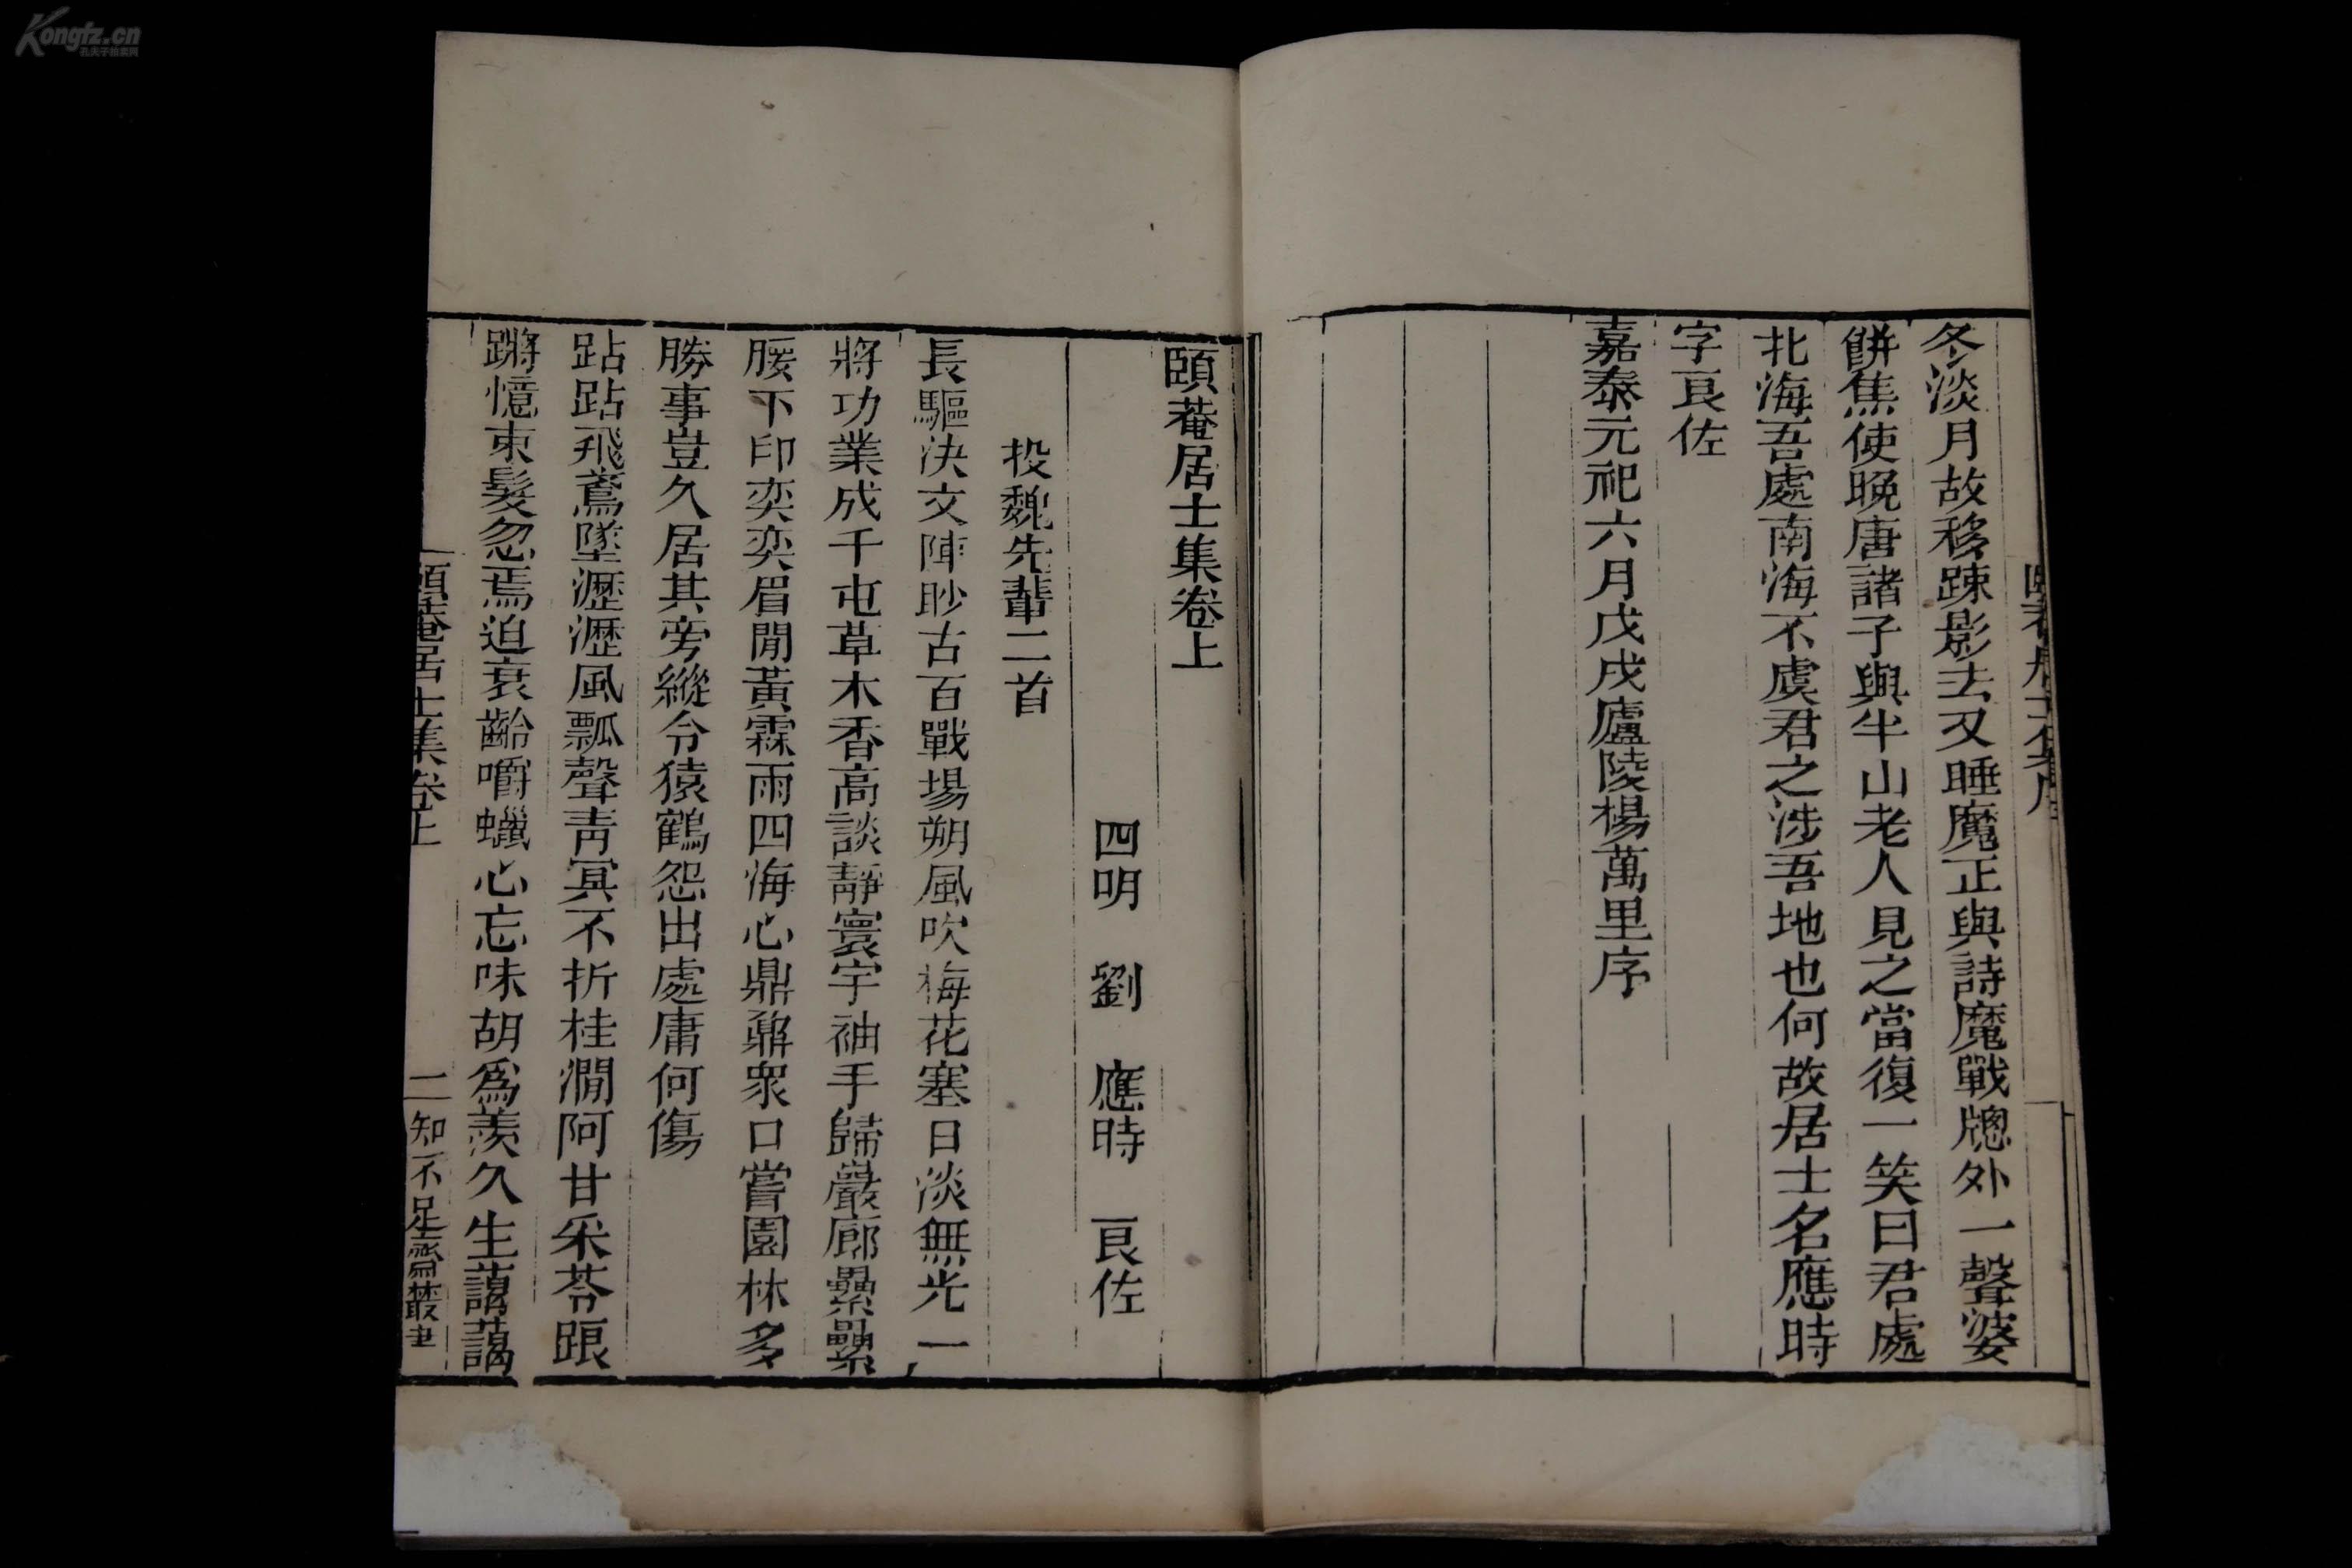 冬淡月故移疎影去又睡魔正與詩魔戰牕外一聲婆
餅焦使晚唐諸子與半山老人見之當復一笑曰君處
北海吾處南海不虞君之涉吾地也何故居士名應時
字良佐
嘉泰元祀六月戊戌廬陵楊萬里序
頤菴居士集卷上
四明 劉 應時 良佐
投魏先輩二首
長驅決文陣眇古百戰場朔風吹梅花塞日淡無光一
將功業成千屯草木香高談靜寰宇袖手歸巖廊纍纍
腰下印奕奕眉間黃霖雨四海心鼎鼐衆口嘗園林多
勝事豈久居其旁縱令猿鶴怨出處庸何傷
跕跕飛鳶墜瀝瀝風瓢聲青冥不折桂澗阿甘采苓踉
蹡憶束髮忽焉迫衰齡嚼蠟心忘味胡為羨久生藹藹
頤菴居士集卷上
二
知不足齋叢書
Kongfz.cn
孔夫子旧书网